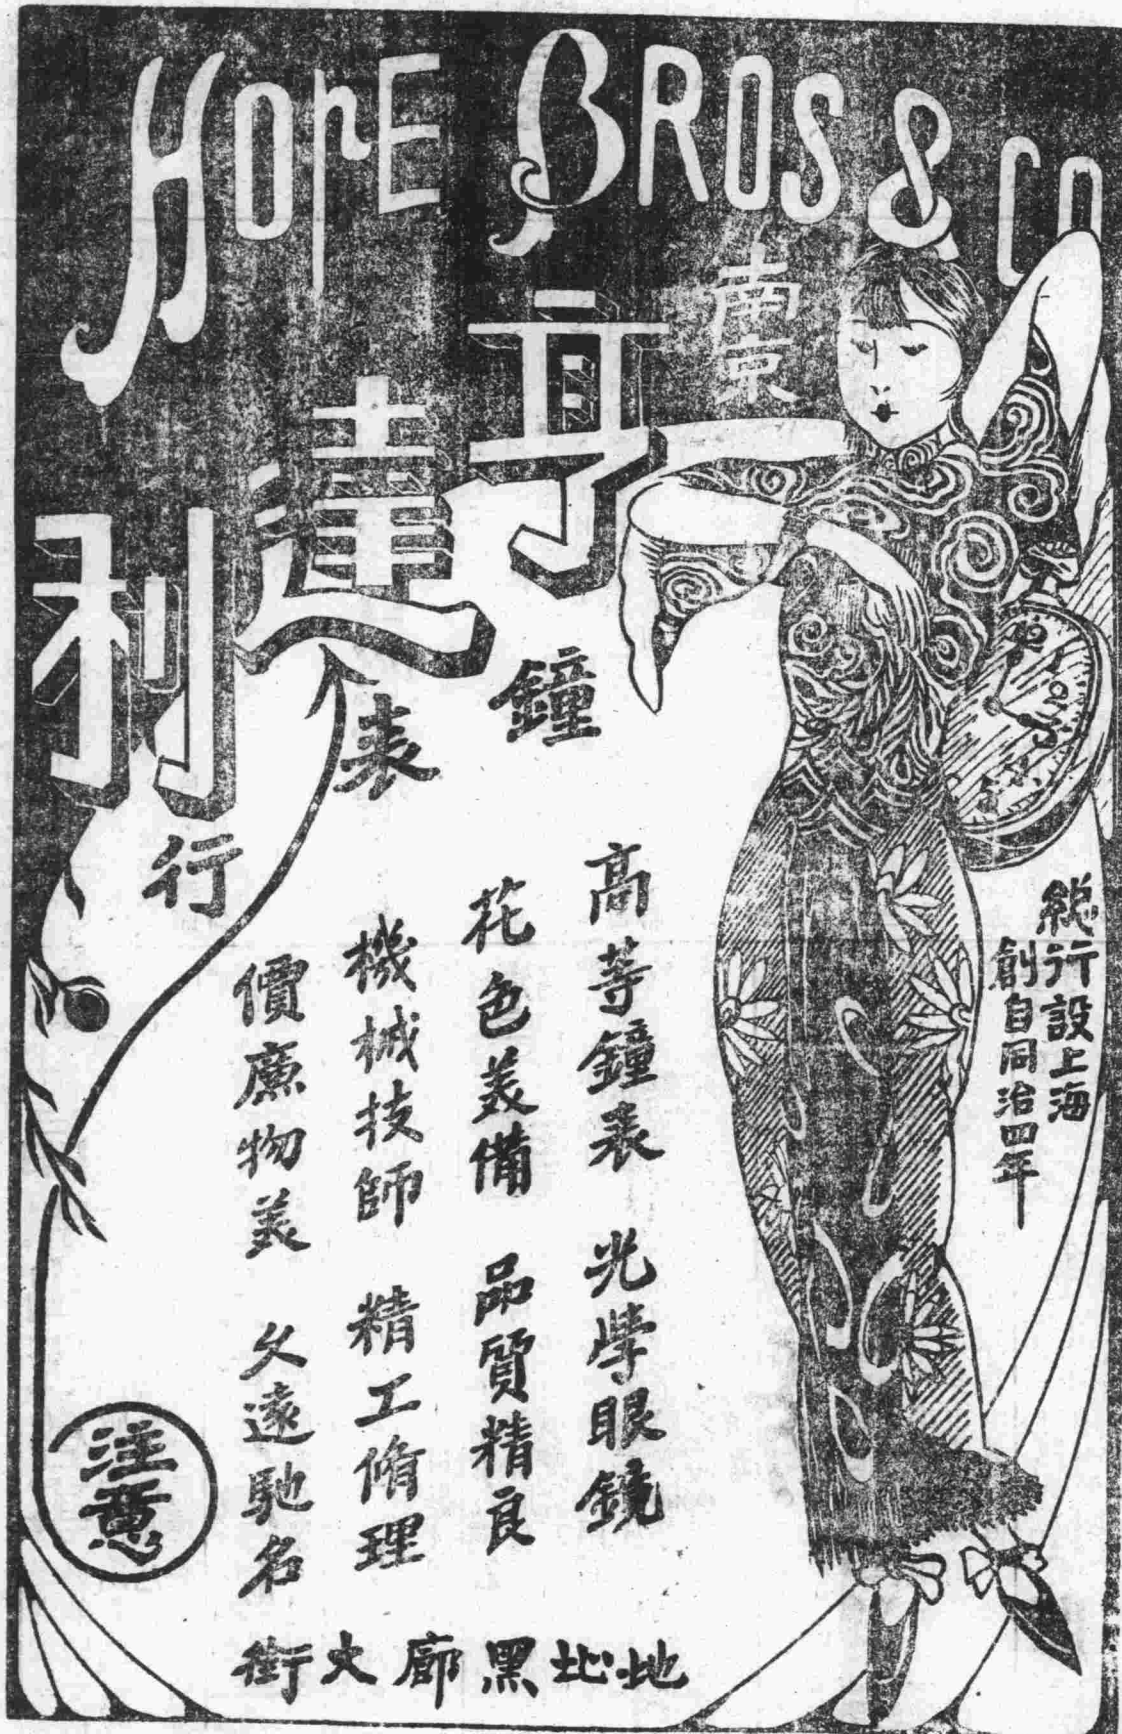 HOPE BROS & CO
南京
亨達利
鐘表行
總行設上海
創自同治四年
高等鐘表 光學眼鏡
花色美備 品質精良
機械技師 精工脩理
價廉物美 久遠馳名
地址北黑廊大街
注意